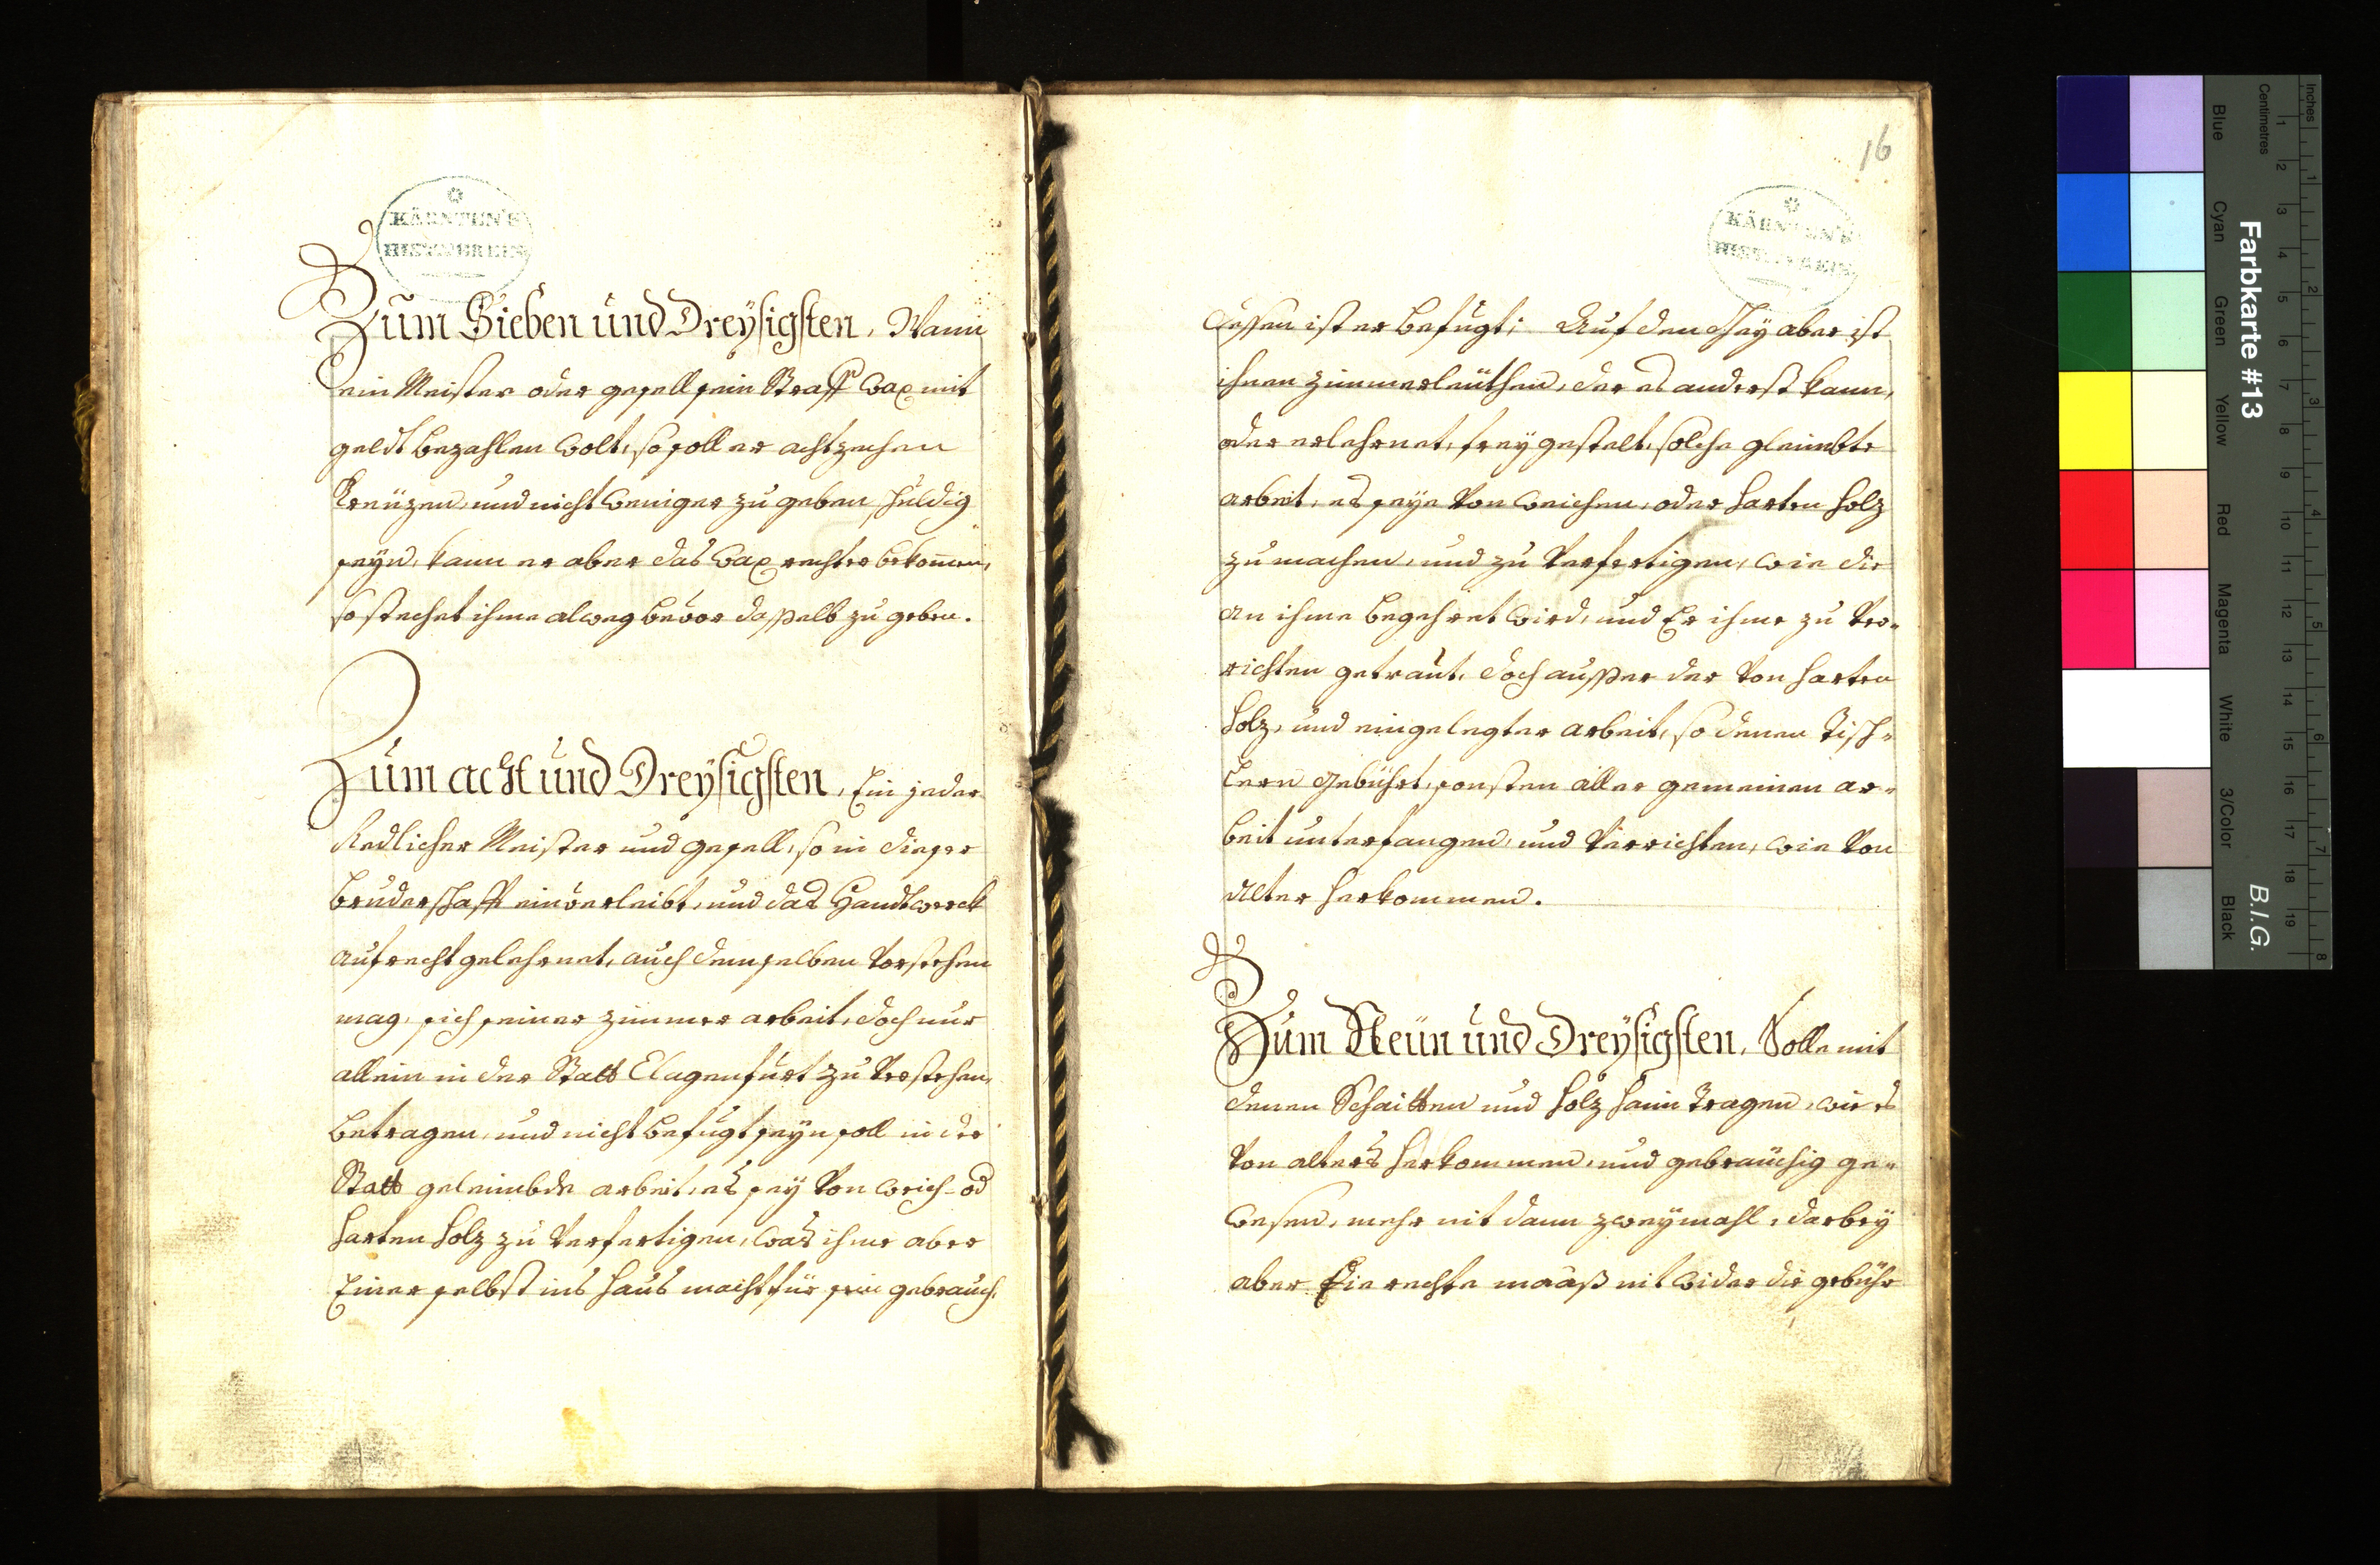 KÄRNTEN'S
HIST. VEREIN
Zum Sieben und Dreysigsten, Wann
ein Meister oder gesell sein Straff Wax mit
geldt bezahlen wolt, so soll er achtzechen
Kreüzen, und nicht weniger zu geben schuldig
seyn, kann er aber das Wax rechter bekom̄en,
so stechet ihme alweg bevor dasselb zu geben.
Zum acht und Dreysigsten, Ein jeder
Redlicher Meister und gesell, so in dieser
bruderschafft einverleibt, und das Handtwerck
aufrecht gelehrnet, auch demselben vorstehen
mag, sich seiner zimmer arbeit, doch nur
allein in der Statt Clagenfurt zu verstehen,
betragen, und nicht befugt seyn soll in der
Statt geleimbde arbeit, es sey von weich- od
harten holz zu verfertigen, was ihme aber
Einer selbst ins haus macht für sein gebrauch,
16
KÄRNTEN'S
HIST. VEREIN
dessen ist er befugt; Auf den Gey aber ist
ihnen zimmerleüthen, der es anderst kann,
oder erlehrnet, frey gestelt, solche gleimbte
arbeit, es seye von weichen, oder harten holz
zu machen, und zu verfertigen, wie die
an ihme begehret wird, und Er ihme zu ver-
richten getraut, doch ausser der von harten
holz, und eingelegter arbeit, so denen Tisch-
lern gebührt, sonsten aller gemeinen ar-
beit unterfangen, und verrichten, wie von
alter herkommen.
Zum Neün und Dreysigsten, Solle mit
denen Schaitten und holz haim tragen, wie es
von alters herkommen, und gebrauchig ge-
wesen, mehr nit dann zweymahl, darbey
aber die rechte maaß nit wider die gebühr
Farbkarte #13
B.I.G.
Inches
Centimetres
Blue
Cyan
Green
Yellow
Red
Magenta
White
3/Color
Black